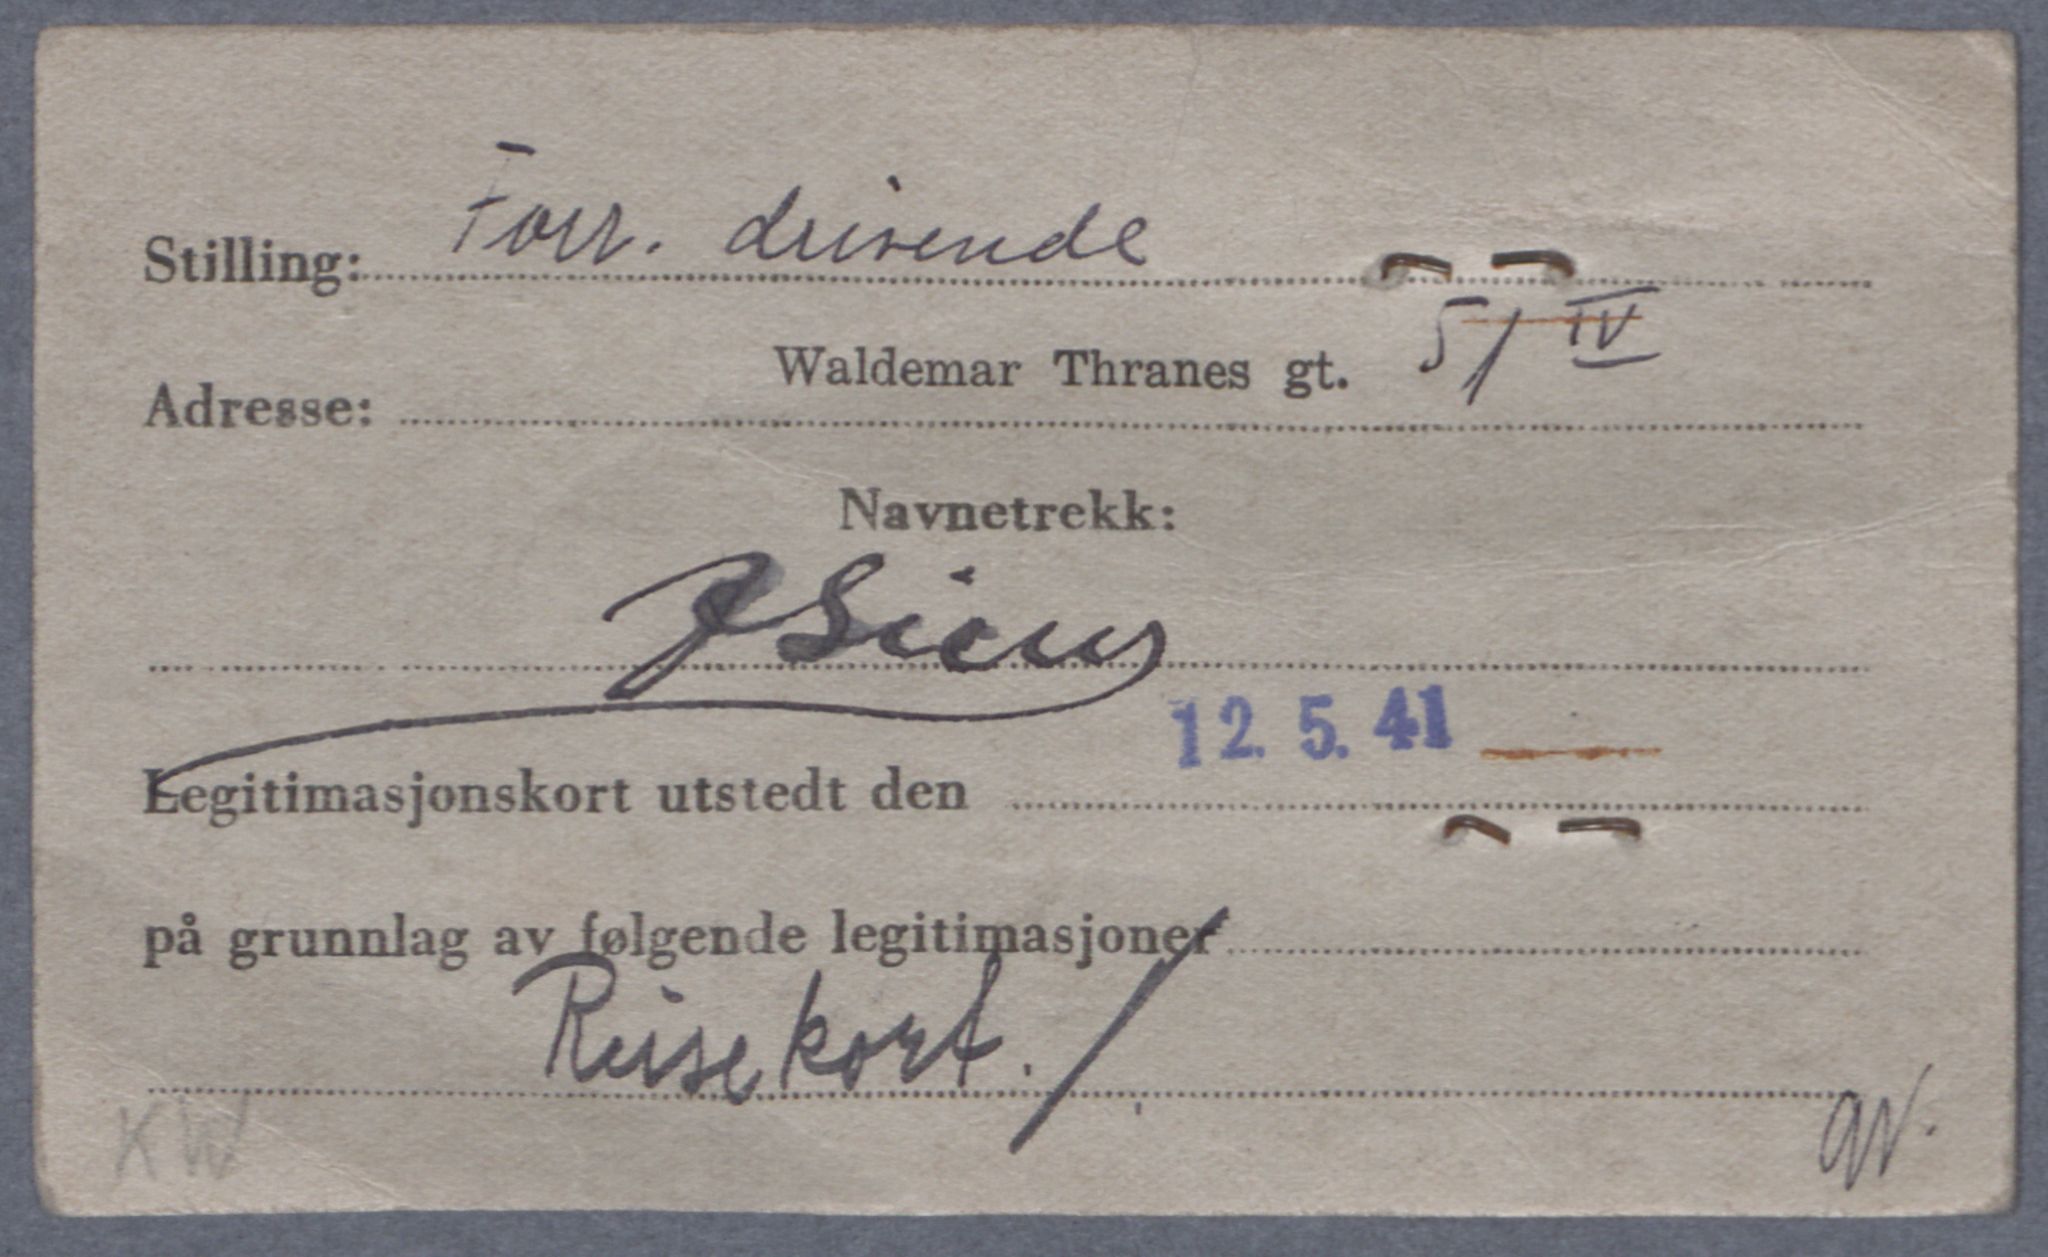 Stilling: Forr. drivende
Waldemar Thranes gt. 51 IV
Adresse:
Navnetrekk:
Legitimasjonskort utstedt den 12. 5. 41
på grunnlag av følgende legitimasjoner
Reisekort.
KW